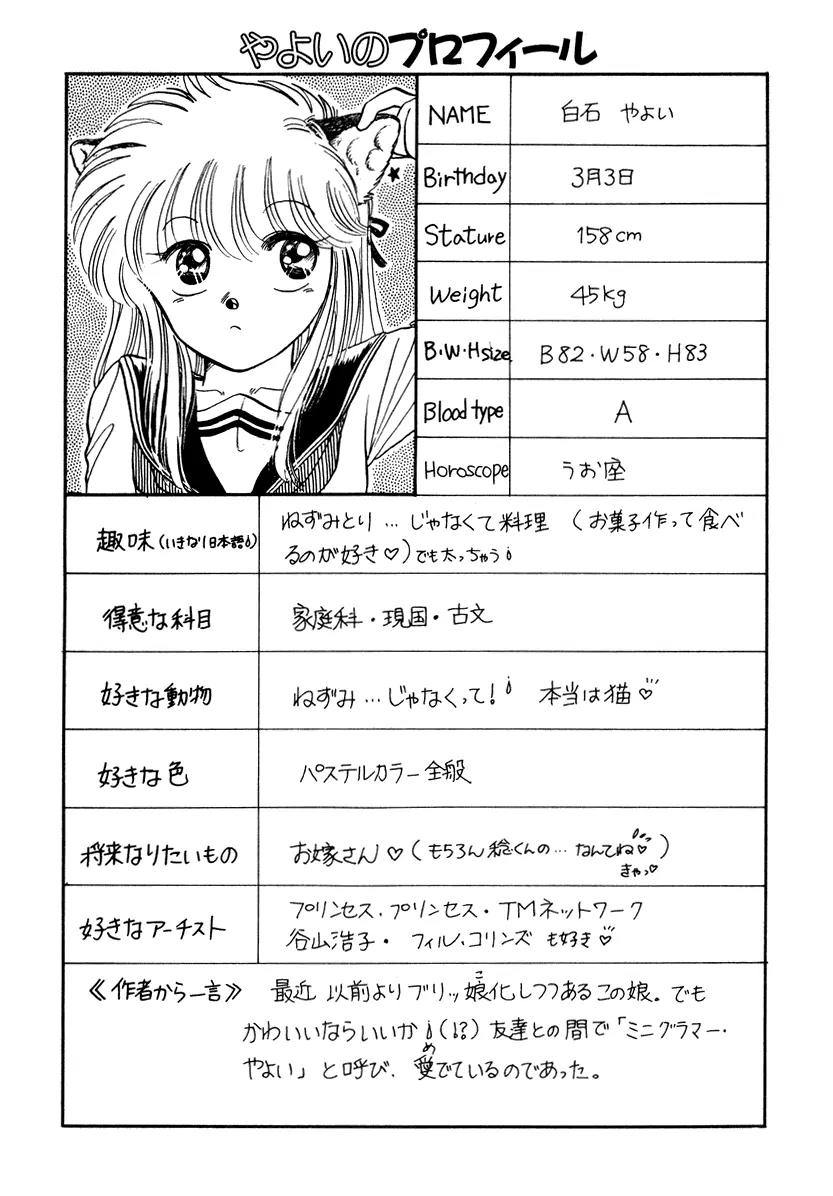 やよいのプロフィール
NAME 白石 やよい
Birthday 3月3日
Stature 158cm
Weight 45kg
B・W・Hsize B82・W58・H83
Blood type A
Horoscope うお座
趣味(いきなり日本語) ねずみとり…じゃなくて料理 (お菓子作って食べ
るのが好き♡)でも太っちゃう
得意な科目 家庭科・現国・古文
好きな動物 ねずみ…じゃなくって! 本当は猫♡
好きな色 パステルカラー全般
将来なりたいもの お嫁さん♡(もちろん稔くんの…なんてね♡)
きゃっ♡
好きなアーチスト プリンセス・プリンセス・TMネットワーク
谷山浩子・フィル・コリンズ も好き♡
≪作者から一言≫ 最近 以前よりブリッ娘化しつつあるこの娘。でも
かわいいならいいか(!?)友達との間で「ミニグラマー・
やよい」と呼び、愛でているのであった。